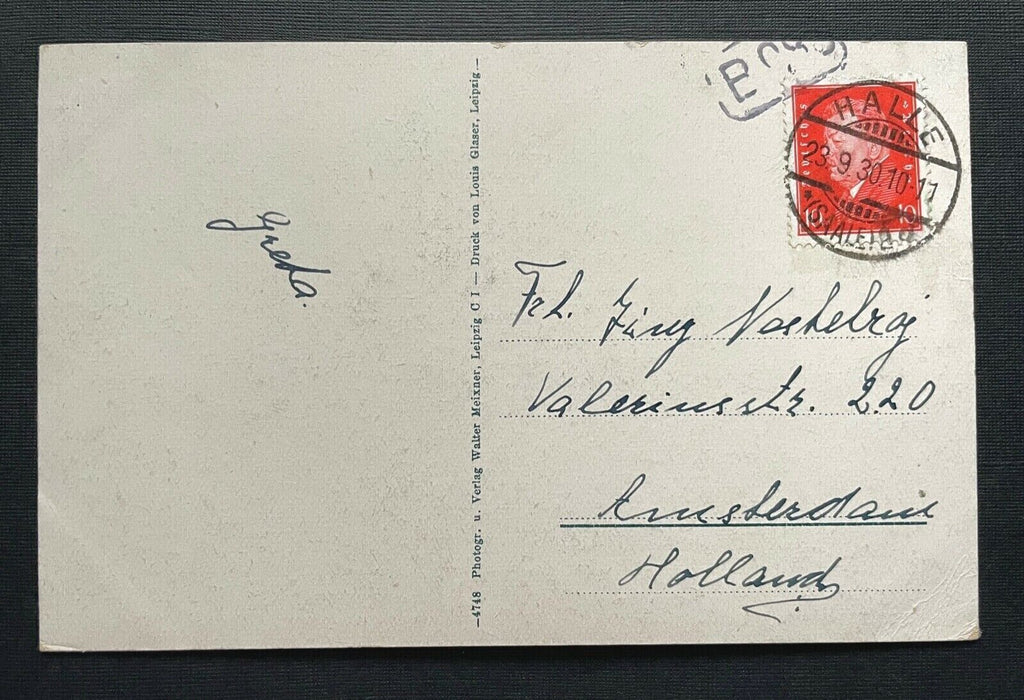 Greda.
—4748 Photogr. u. Verlag Walter Meixner, Leipzig C 1 — Druck von Louis Glaser, Leipzig.—
HALLE
23.9.30 10-11
*(SAALE)
10
Frl.
Valeriusstr. 220
Amsterdam
Holland